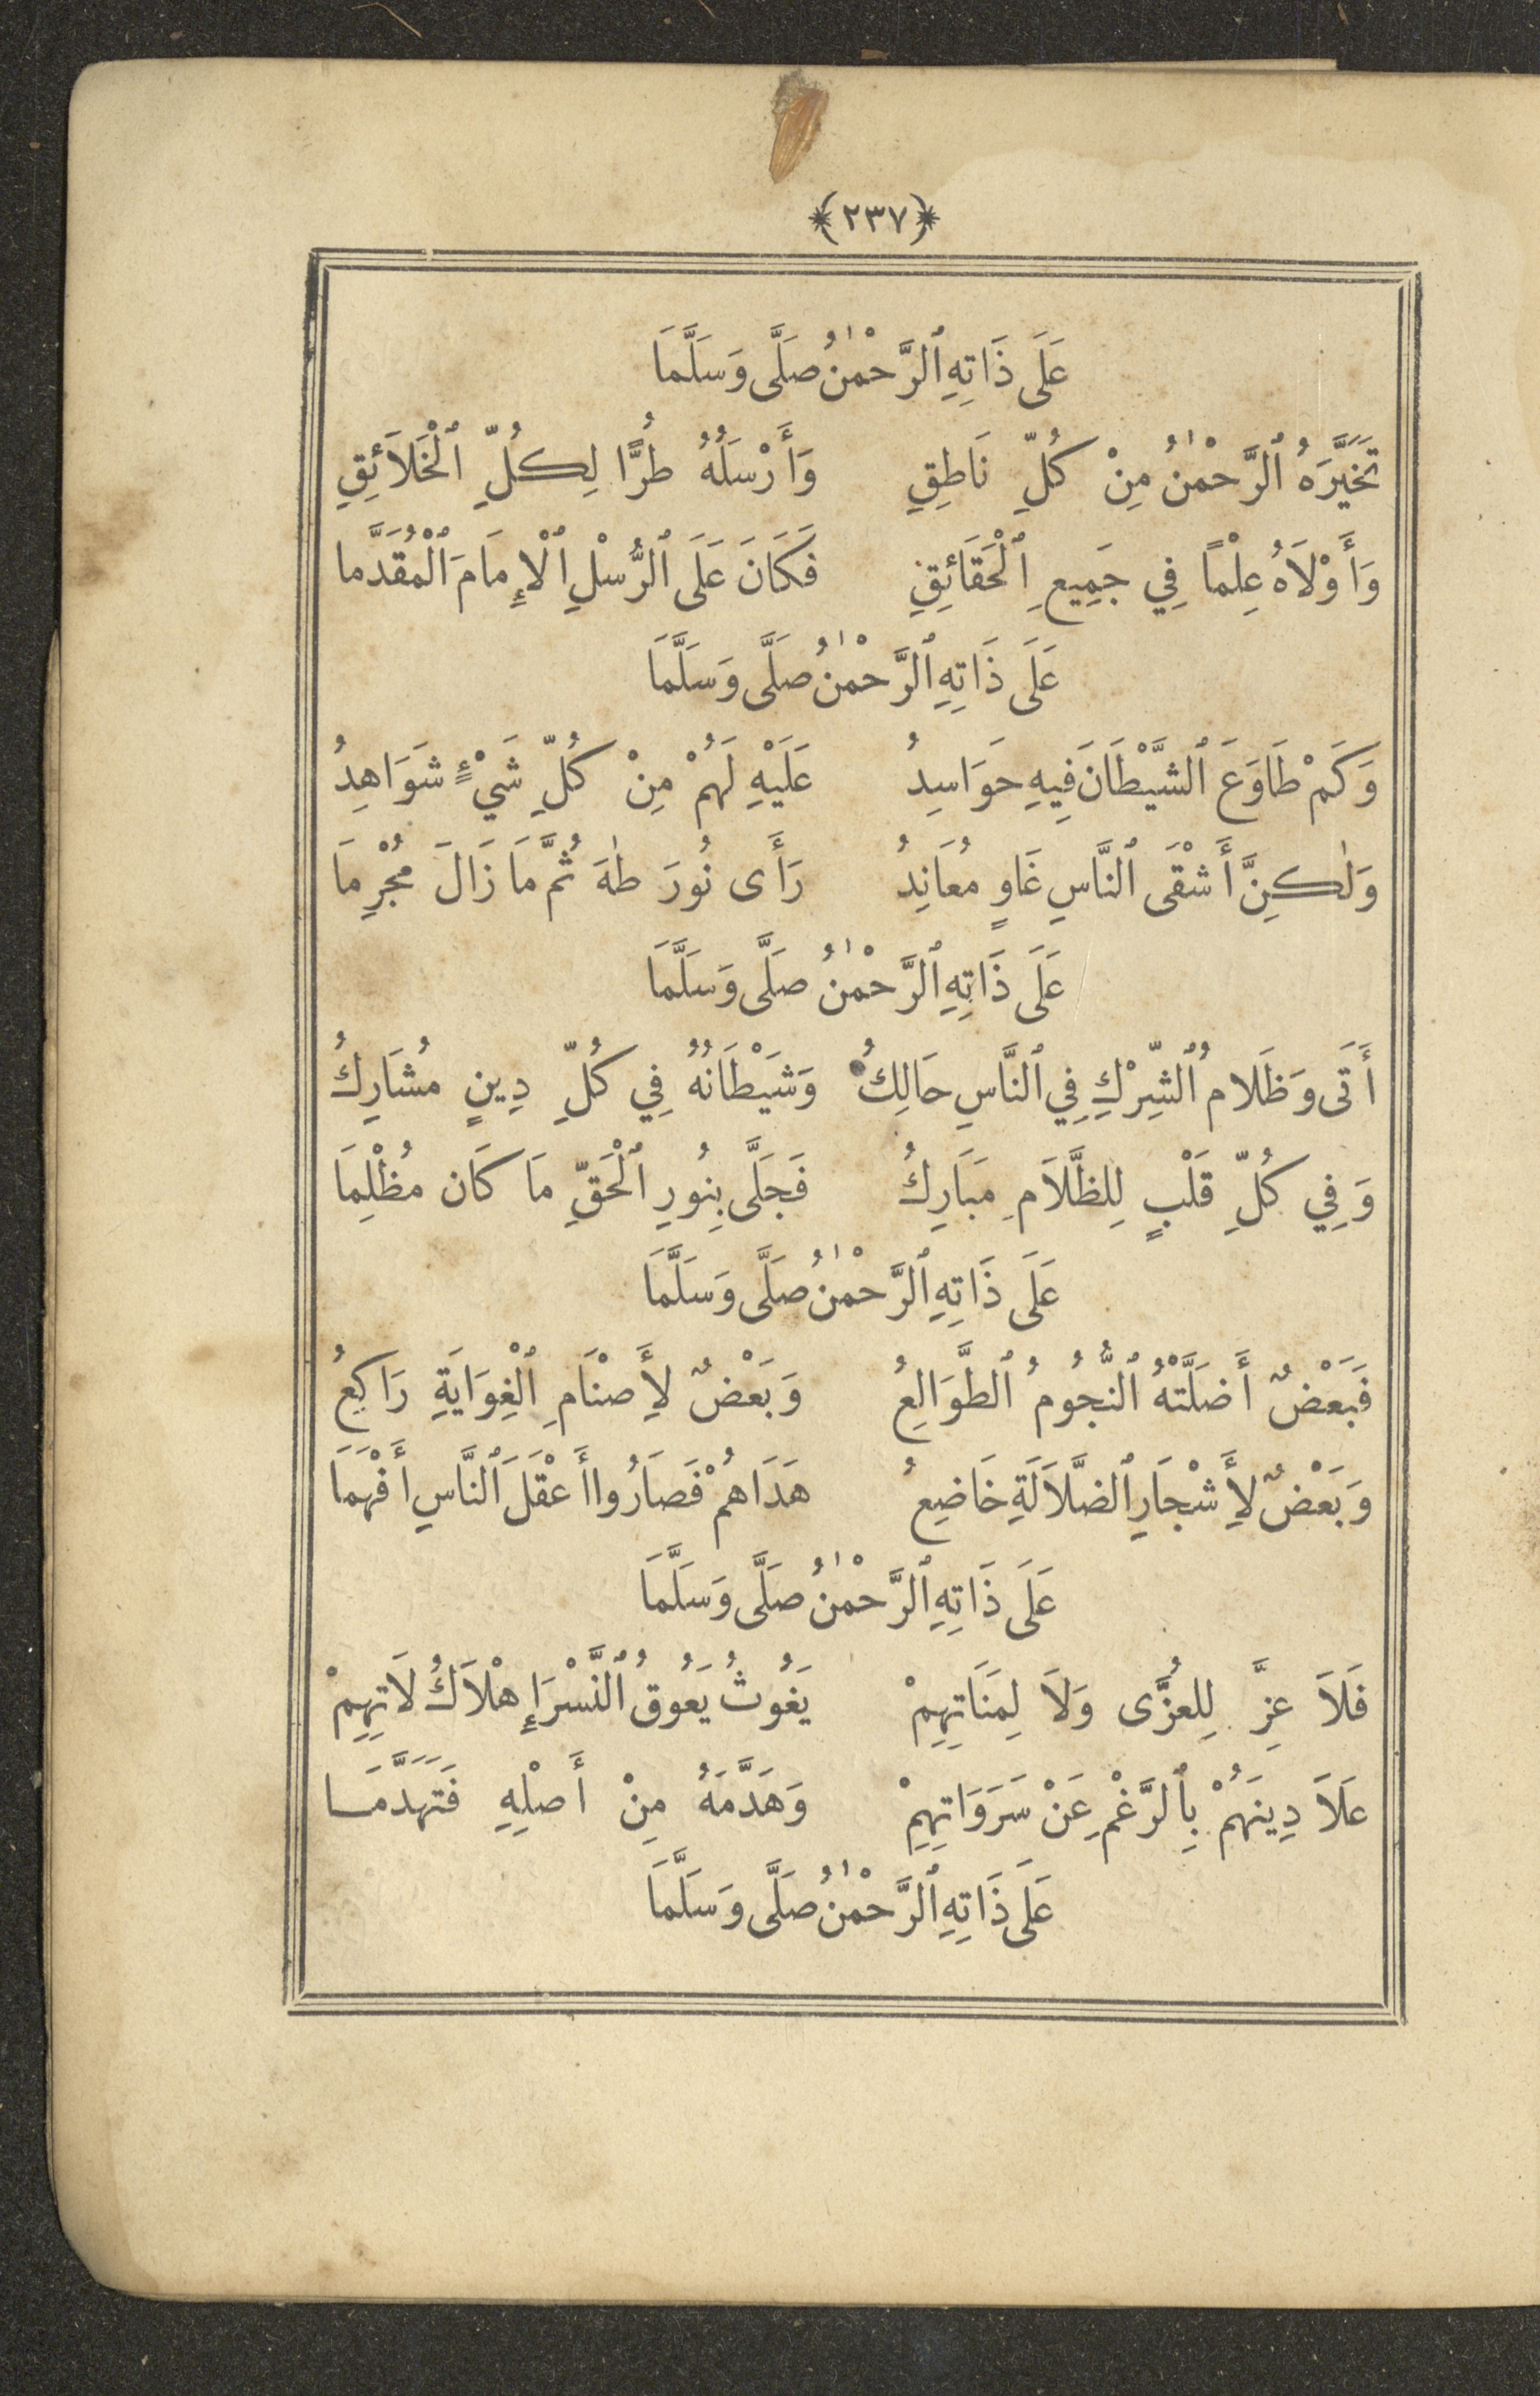 ﴿٢٣٧﴾
عَلَى ذَاتِهِ ٱلرَّحْمٰنُ صَلَّى وَسَلَّمَا
تَخَيَّرَهُ ٱلرَّحْمٰنُ مِنْ كُلِّ نَاطِقِ وَأَرْسَلَهُ طُرًّا لِكُلِّ ٱلْخَلَائِقِ
وَأَوْلَاهُ عِلْمًا فِي جَمِيعِ ٱلْحَقَائِقِ فَكَانَ عَلَى ٱلرُّسْلِ ٱلْإِمَامَ ٱلْمُقَدَّمَا
عَلَى ذَاتِهِ ٱلرَّحْمٰنُ صَلَّى وَسَلَّمَا
وَكَمْ طَاوَعَ ٱلشَّيْطَانَ فِيهِ حَوَاسِدُ عَلَيْهِ لَهُمْ مِنْ كُلِّ شَيْءٍ شَوَاهِدُ
وَلٰكِنَّ أَشْقَى ٱلنَّاسِ غَاوٍ مُعَانِدُ رَأَى نُورَ طٰهَ ثُمَّ مَا زَالَ مُجْرِمَا
عَلَى ذَاتِهِ ٱلرَّحْمٰنُ صَلَّى وَسَلَّمَا
أَتَى وَظَلَامُ ٱلشِّرْكِ فِي ٱلنَّاسِ حَالِكُ وَشَيْطَانُهُ فِي كُلِّ دِينٍ مُشَارِكُ
وَفِي كُلِّ قَلْبٍ لِلظَّلَامِ مَبَارِكُ فَجَلَّى بِنُورِ ٱلْحَقِّ مَا كَان مُظْلِمَا
عَلَى ذَاتِهِ ٱلرَّحْمٰنُ صَلَّى وَسَلَّمَا
فَبَعْضٌ أَضَلَّتْهُ ٱلنُّجُومُ ٱلطَّوَالِعُ وَبَعْضٌ لِأَصْنَامِ ٱلْغِوَايَةِ رَاكِعُ
وَبَعْضٌ لِأَشْجَارِ ٱلضَّلَالَةِ خَاضِعُ هَدَاهُمْ فَصَارُوا أَعْقَلَ ٱلنَّاسِ أَفْهَمَا
عَلَى ذَاتِهِ ٱلرَّحْمٰنُ صَلَّى وَسَلَّمَا
فَلَا عِزَّ لِلعُزَّى وَلَا لِمَنَاتِهِمْ يَغُوثُ يَعُوقُ ٱلنَّسْرَ إِهْلَاكُ لَاتِهِمْ
عَلَا دِينَهُمْ بِٱلرَّغْمِ عَنْ سَرَوَاتِهِمْ وَهَدَّمَهُ مِنْ أَصْلِهِ فَتَهَدَّمَا
عَلَى ذَاتِهِ ٱلرَّحْمٰنُ صَلَّى وَسَلَّمَا